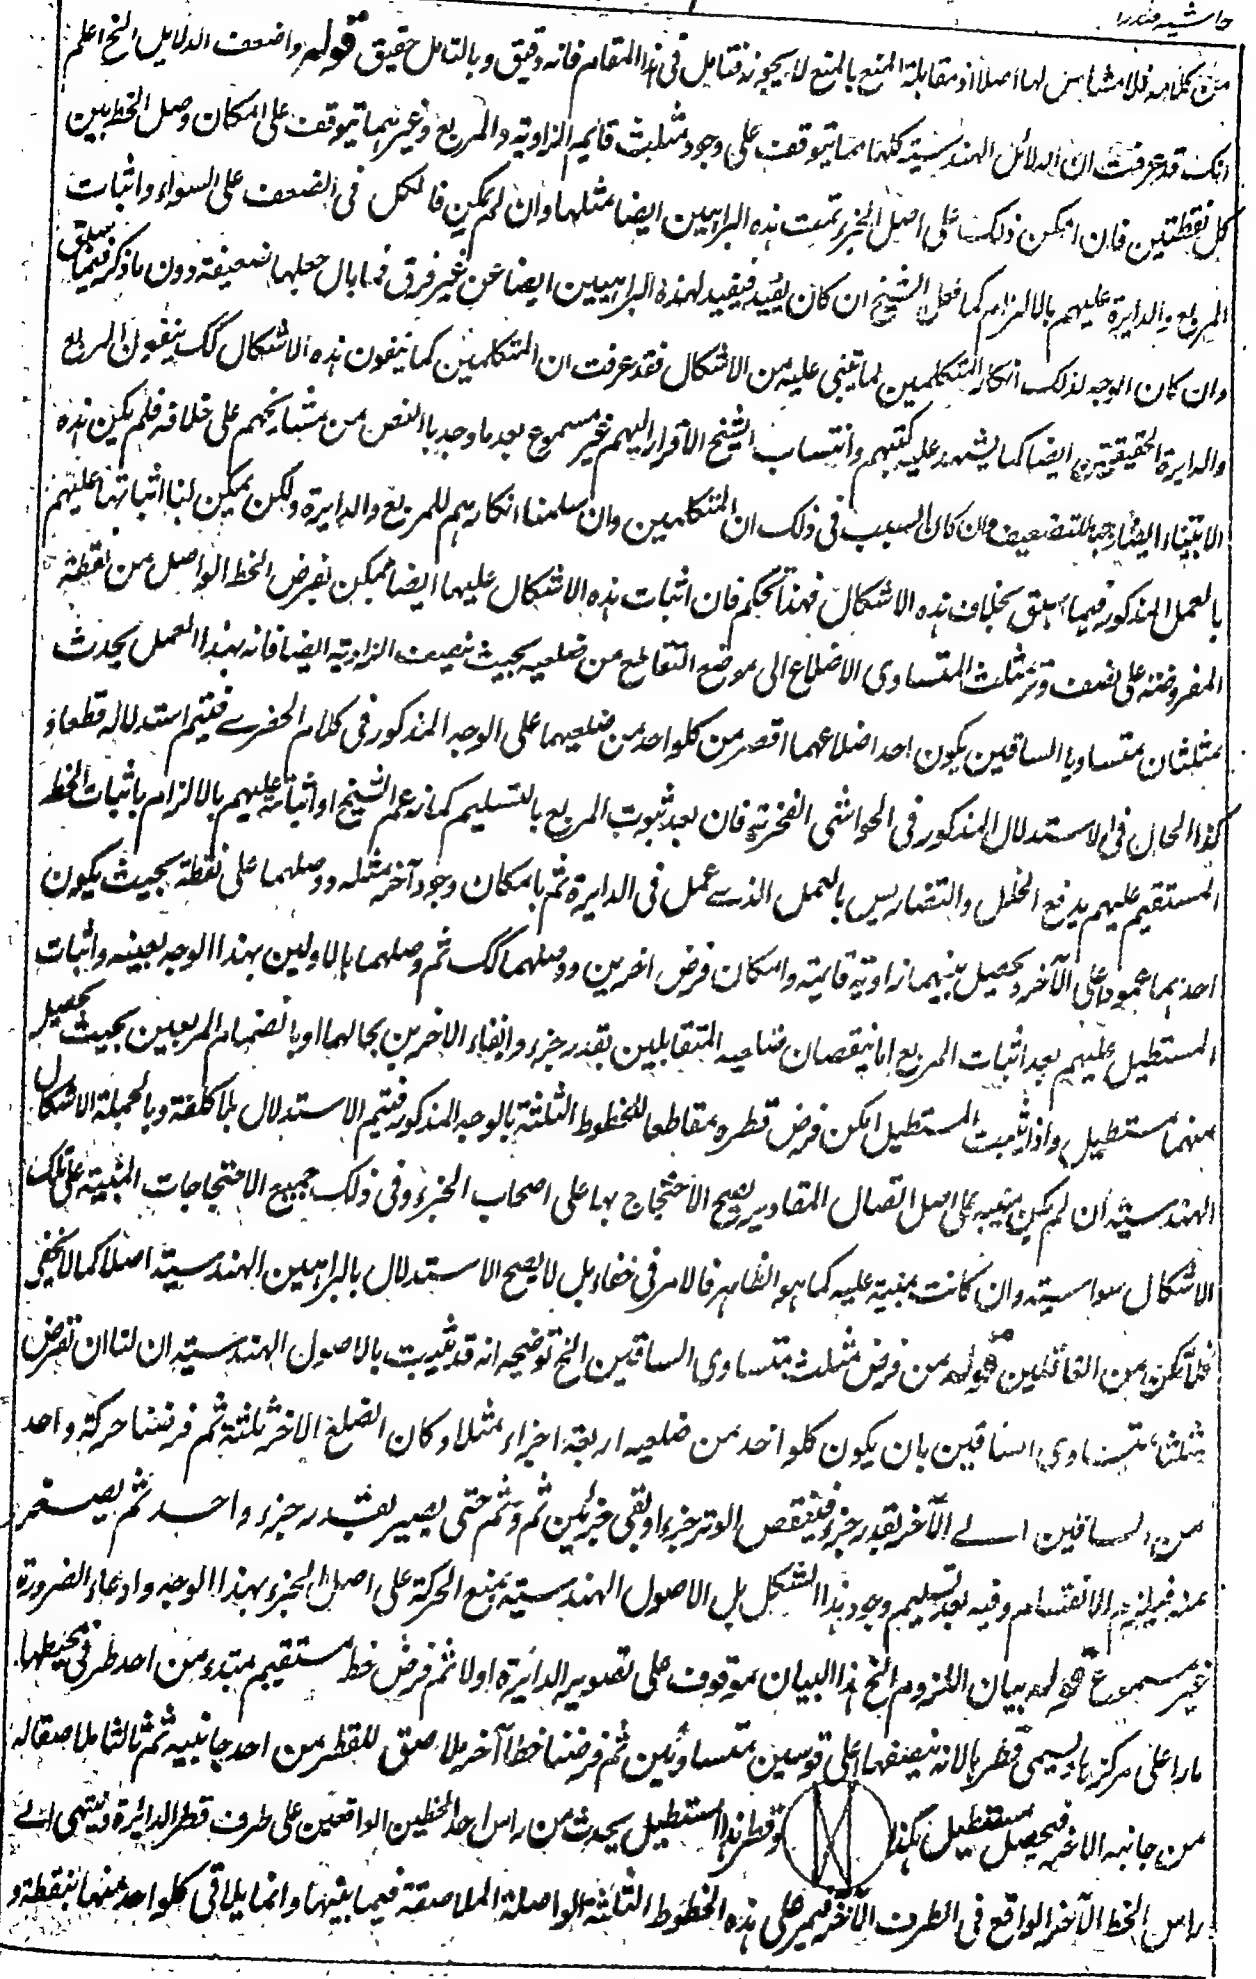 حاشیه صدرا
من كلامه فلا مشاحن لها اصلا اذ مقابلة المنع بالمنع لا يجوز فتامل فى هذا المقام فانه دقيق وبالتامل حقيق قوله واضعف الدلايل الخ اعلم
انك قد عرفت ان الدلائل الهندسية كلها مما يتوقف على وجود مثلث قايم الزاوية والمربع وغيرهما يتوقف على امكان وصل الخط بين
كل نقطتين فان امكن ذلك على اصل الجزء تمت هذه البراهين ايضا بمثلها وان لم يمكن فالكل فى الضعف على السواء واثبات
المربع والدايرة عليهم بالالزام كما فعل الشيخ ان كان يفيد فيفيد لهذه البراهين ايضا من غير فرق فما بال جعلها ضعيفة دون ما ذكر فيما سبق
وان كان الوجه لذلك انكار المتكلمين لما يبتنى عليه من الاشكال فقد عرفت ان المتكلمين كما ينفون هذه الاشكال كك ينفون المربع
والدايرة الحقيقتين ايضا كما يشهد عليه كتبهم وانتساب الشيخ الاقرار اليهم غير مسموع بعد ما وجد بالنص من مشايخهم على خلافه فلم يكن هذه
الابتناء ايضا وجها للتضعيف وان كان السبب فى ذلك ان المتكلمين وان سلمنا انكارهم للمربع والدايرة ولكن يمكن لنا اثباتها عليهم
بالعمل المذكور فيما سبق بخلاف هذه الاشكال فهذا تحكم فان اثبات هذه الاشكال عليها ايضا ممكن بفرض الخط الواصل من نقطة
المفروضة على نصف وتر مثلث المتساوى الاضلاع الى موضع التقاطع من ضلعيه بحيث ينصف الزاوية ايضا فانه بهذا العمل يحدث
مثلثان متساويا الساقين يكون احد اضلاعهما اقصر من كلواحد من ضلعيهما على الوجه المذكور فى كلام الحضرے فيتم استدلاله قطعا و
كذا الحال فى الاستدلال المذكور فى الحواشى الفخرية فان بعد ثبوت المربع بالتسليم كما زعم الشيخ او اثباته عليهم بالالزام باثبات الخط
المستقيم عليهم بدفع الخلل والتضاريس بالعمل الذے عمل فى الدايرة ثم بامكان وجود آخر مثله ووصلهما على نقطة بحيث يكون
احدهما عمودا على الآخر ويحصل بينهما زاوية قايمة وامكان فرض اخرين ووصلهما كك ثم وصلهما بالاولين بهذا الوجه بعينه واثبات
المستطيل عليهم بعد اثبات المربع اما بنقصان ضلعيه المتقابلين بقدر جزء وابقاء الاخرين بحالهما او بانضمام المربعين بحيث يحصل
منهما مستطيل واذا ثبت المستطيل امكن فرض قطره مقاطعا للخطوط الثلثة بالوجه المذكور فيتم الاستدلال بلا كلفة وبالجملة الاشكال
الهندسية ان لم يكن مبنية على اصل اتصال المقادير يصح الاحتجاج بها على اصحاب الجزء وفى ذلك جميع الاحتجاجات المبنية على تلك
الاشكال سواسية وان كانت مبنية عليه كما هو الظاهر فالامر فى خفاء بل لا يصح الاستدلال بالبراهين الهندسية اصلا كما لا يخفى
فلا تكن من الغافلين قوله من فرض مثلث متساوى الساقين الخ توضيحه انه قد ثبت بالاصول الهندسية ان لنا ان نفرض
مثلثا متساوى الساقين بان يكون كلواحد من ضلعيه اربعة اجزاء مثلا وكان الضلع الاخر ثلثة ثم فرضنا حركة واحد
من الساقين الے الآخر بقدر جزء فينقص الوتر جزءا وبقى جزئين ثم وثم حتى يصير بقدر جزء واحد ثم يصغر
عنه فيلزم الانقسام وفيه بعد تسليم وجود هذا الشكل بل الاصول الهندسية يمنع الحركة على اصل الجزء بهذا الوجه وادعاء الضرورة
غير مسموع قوله بيان اللزوم الخ هذا البيان موقوف على تصوير الدايرة اولا ثم فرض خط مستقيم مبتدء من احد طرفى محيطها
مارا على مركزها ويسمى قطرا لانه ينصفها على قوسين متساويين ثم فرضنا خطا آخر ملاصق للقطر من احد جانبيه ثم ثالثا ملاصقا له
من جانبه الاخر فيحصل مستطيل هكذا وقطر هذا المستطيل يحدث من راس احد الخطين الواقعين على طرف قطر الدائرة وينتهى الے
راس الخط الآخر الواقع فى الطرف الآخر فيمر على هذه الخطوط الثلثة الواصلة الملاصقة فيما بينها وانما يلاقى كلواحد منها بنقطة و